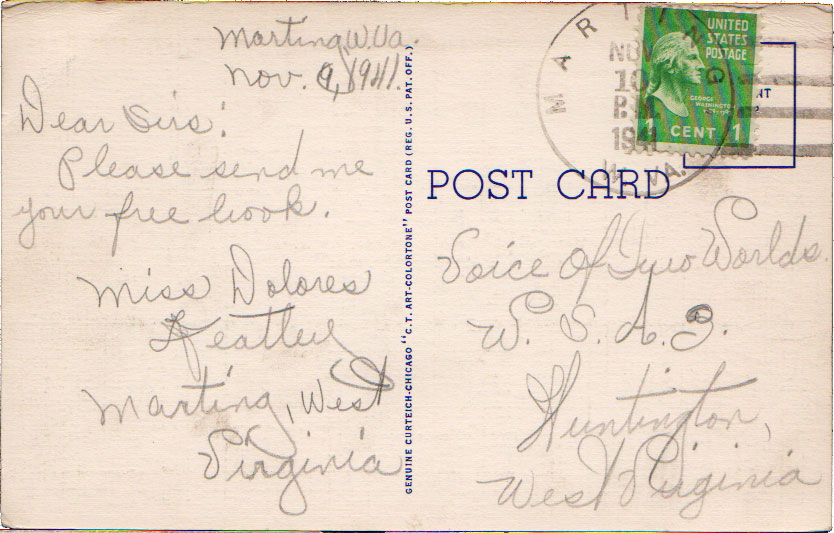 Marting, W. Va.
Nov. 9, 1941.
Dear Sirs:
Please send me
your free book.
Miss Dolores
Marting, West
Virginia
GENUINE CURTEICH-CHICAGO "C.T. ART-COLORTONE" POST CARD (REG. U.S. PAT. OFF.)
MARTING
NOV
10
P.M.
1941
W. VA.
UNITED
STATES
POSTAGE
GEORGE
WASHINGTON
1 CENT 1
POST CARD
Voice of Two Worlds.
W. S. A. Z.
Huntington,
West Virginia